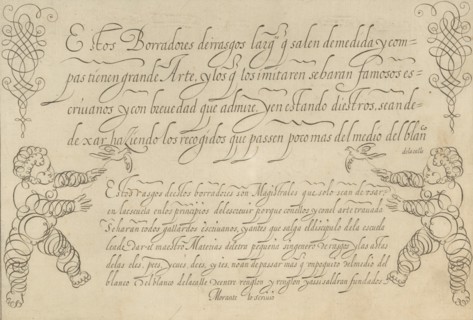 Estos Borradores de rasgos largos q̃ salen de medida y com-
pas tienen grande Arte, y los q̃ los imitaren se haran famosos es-
criuanos y con breuedad que admire. Y en estando diestros, sean de
de xar, haziendo los recogidos que passen poco mas del medio del blanco
de la calle
Estos rasgos destos borradores son Magistrales que solo sean de vsar
en la escuela en los principios del escreuir porque con ellos y con el arte
se haran todos gallardos escriuanos, y antes que salga el discipulo de la escuela
el maestro Materias de letra pequeña sin genero de rasgos y las astas
de las eles, pees, y efes, y tes, no an de passar mas q̃ un poquito del medio del
blanco del blanco de la calle de entre renglon y renglon y assi saldran fundados
Morante lo escriuio